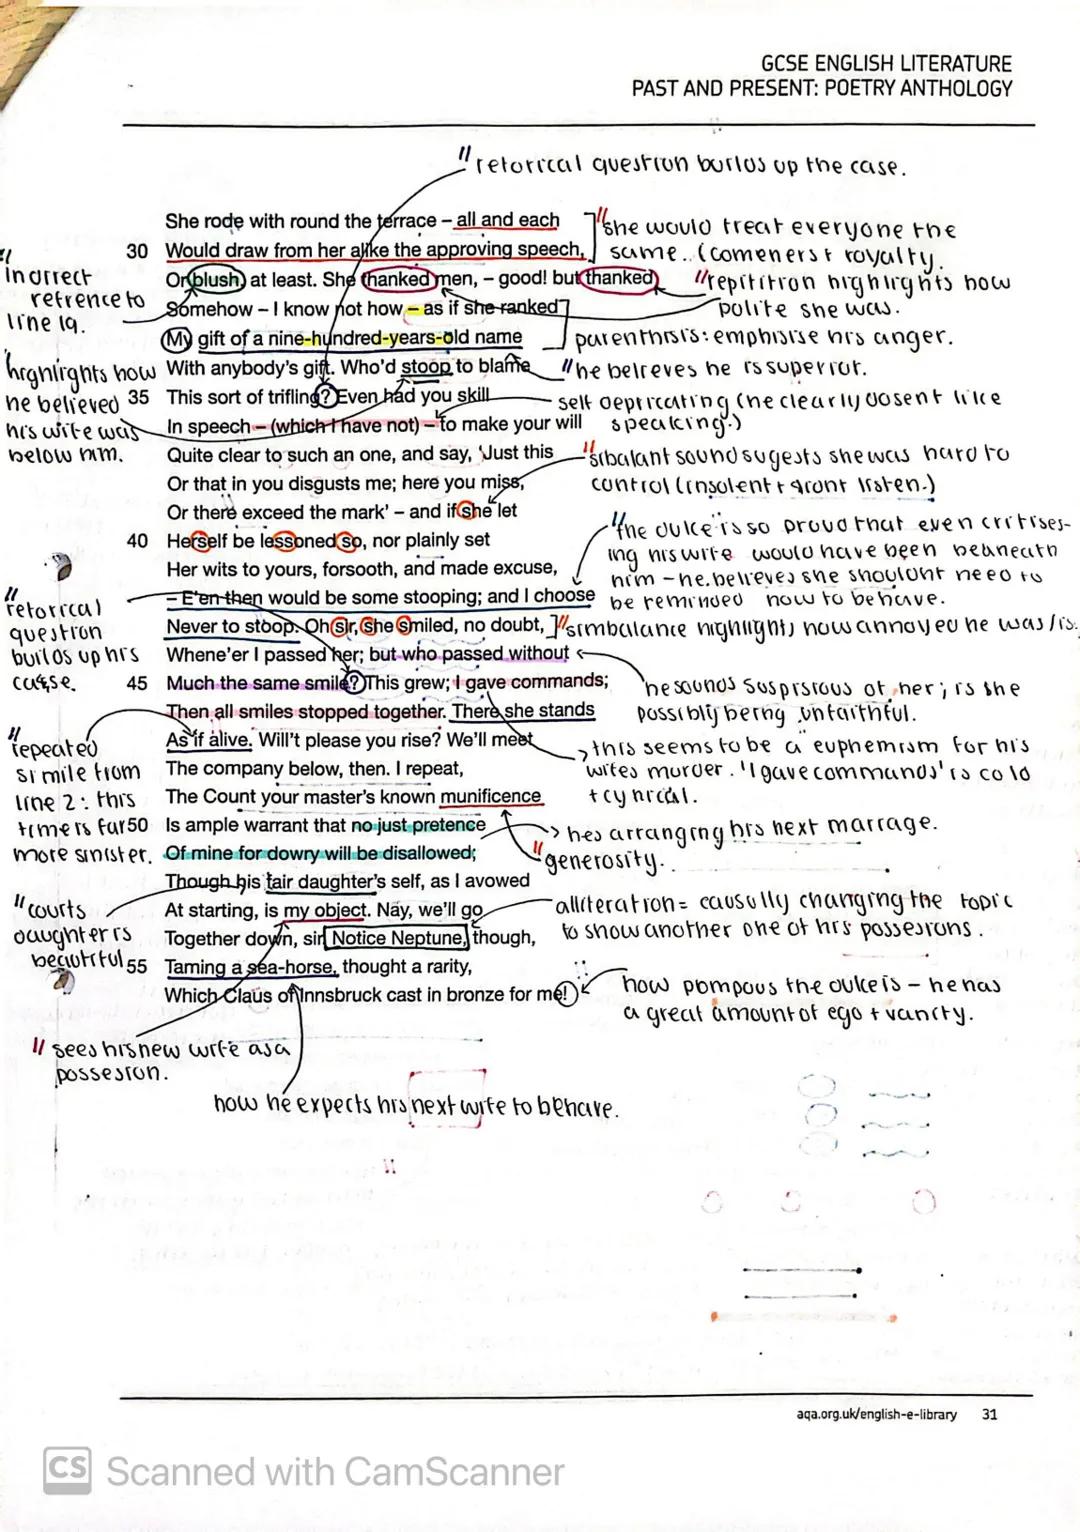 GCSE ENGLISH LITERATURE
PAST AND PRESENT: POETRY ANTHOLOGY
" retorical question builds up the case.
She rode with round the terrace – all and each
30 Would draw from her alike the approving speech,
Or blush, at least. She thanked men, – good! but thanked
Somehow – I know not how – as if she ranked
My gift of a nine-hundred-years-old name
With anybody's gift. Who'd stoop to blame
35 This sort of trifling? Even had you skill
In speech – (which I have not) – to make your will
Quite clear to such an one, and say, 'Just this
Or that in you disgusts me; here you miss,
Or there exceed the mark' – and if she let
40 Herself be lessoned so, nor plainly set
Her wits to yours, forsooth, and made excuse,
– E'en then would be some stooping; and I choose
Never to stoop. Oh sir, she smiled, no doubt,
Whene'er I passed her; but who passed without
45 Much the same smile? This grew; I gave commands;
Then all smiles stopped together. There she stands
As if alive. Will't please you rise? We'll meet
The company below, then. I repeat,
The Count your master's known munificence
50 Is ample warrant that no just pretence
Of mine for dowry will be disallowed;
Though his fair daughter's self, as I avowed
At starting, is my object. Nay, we'll go
Together down, sir. Notice Neptune, though,
55 Taming a sea-horse, thought a rarity,
Which Claus of Innsbruck cast in bronze for me!
"she would treat everyone the
same.. (comeners + royalty.
"repitition highlights how
polite she was.
parenthisis: emphisise his anger.
"he believes he is superior.
self depricating (he clearly dosent like
speaking.)
"sibalant sound sugests she was hard to
control (insolent + didnt listen.)
"the duke is so proud that even critises-
ing his wife would have been beaneath
him – he believes she shouldnt need to
be reminded how to behave.
"simbalance highlights how annoyed he was/is.
he sounds suspisious of her; is she
possibly being unfaithful.
this seems to be a euphemism for his
wifes murder. 'I gave commands' is cold
+ cynical.
hes arranging his next marrage.
"generosity.
alliteration = causually changing the topic
to show another one of his possesions.
how pompous the duke is – he has
a great amount of ego + vanity.
"
indirect
refrence to
line 19.
"highlights how
he believed
his wife was
below him.
"
retorical
question
builds up his
case.
"
repeated
simile from
line 2: this
time is far
more sinister.
"courts
daughter is
beautiful
" sees his new wife as a
possesion.
how he expects his next wife to behave.
aqa.org.uk/english-e-library 31
CS Scanned with CamScanner